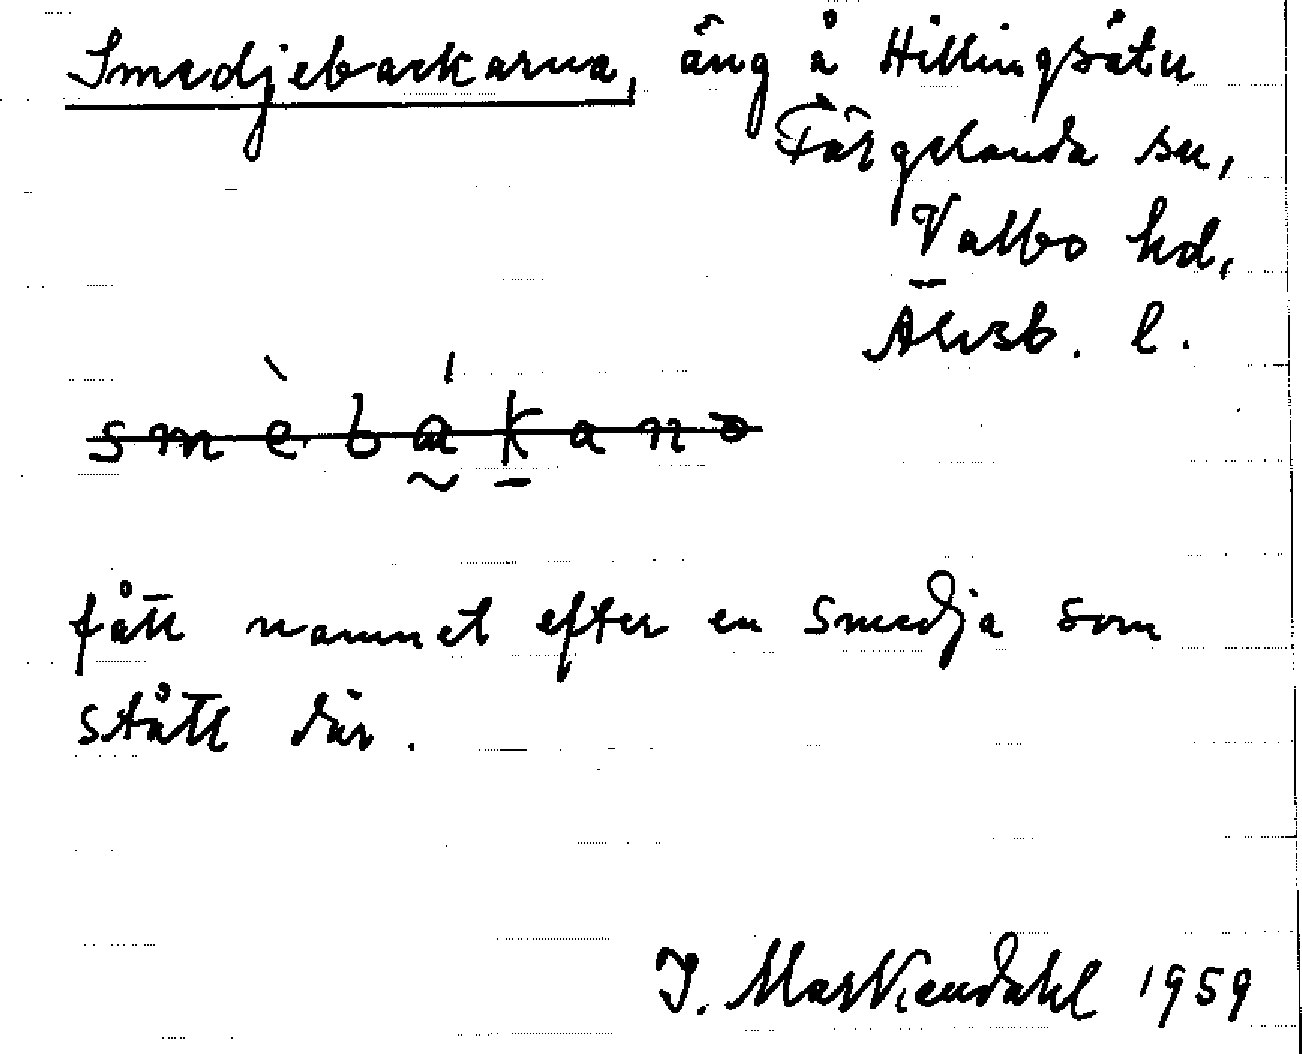 Smedjebackarna, äng å Hillingsäter
Färgelanda sn,
Valbo hd,
Älvsb. l.
smèbákanə
fått namnet efter en smedja som
stått där.
1959